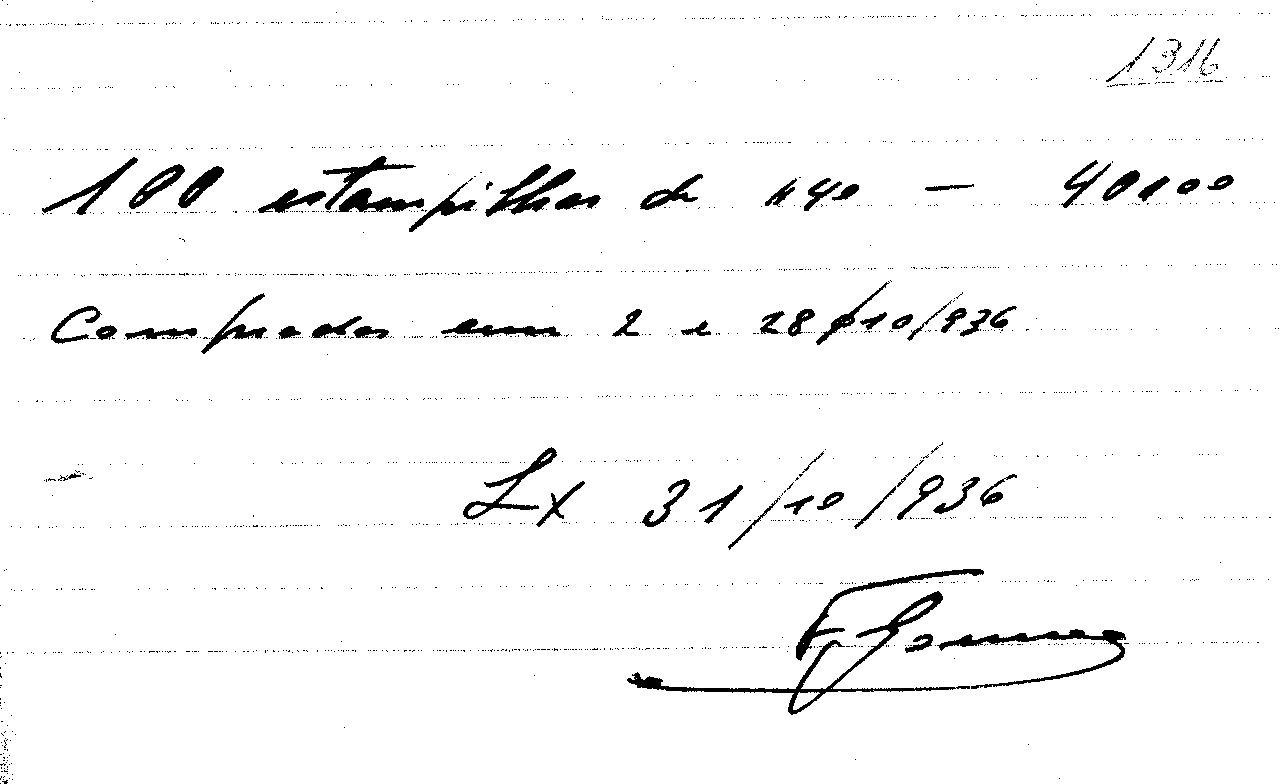 1316
100 estampilhas de $40 — 40$00
Compradas em 2 e 28/10/936
Lx 31/10/936
F Gomes